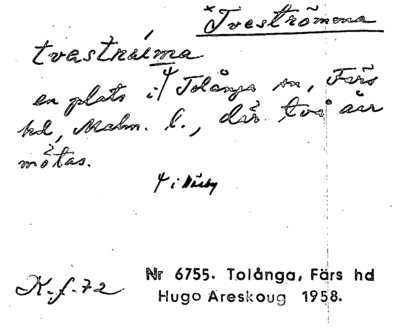 *Tveströmena
tvestraima
en plats i Tolånga sn, Färs
hd, Malm. l., där två åar
mötas.
i
K.f.72
Nr 6755. Tolånga, Färs hd
Hugo Areskoug 1958.